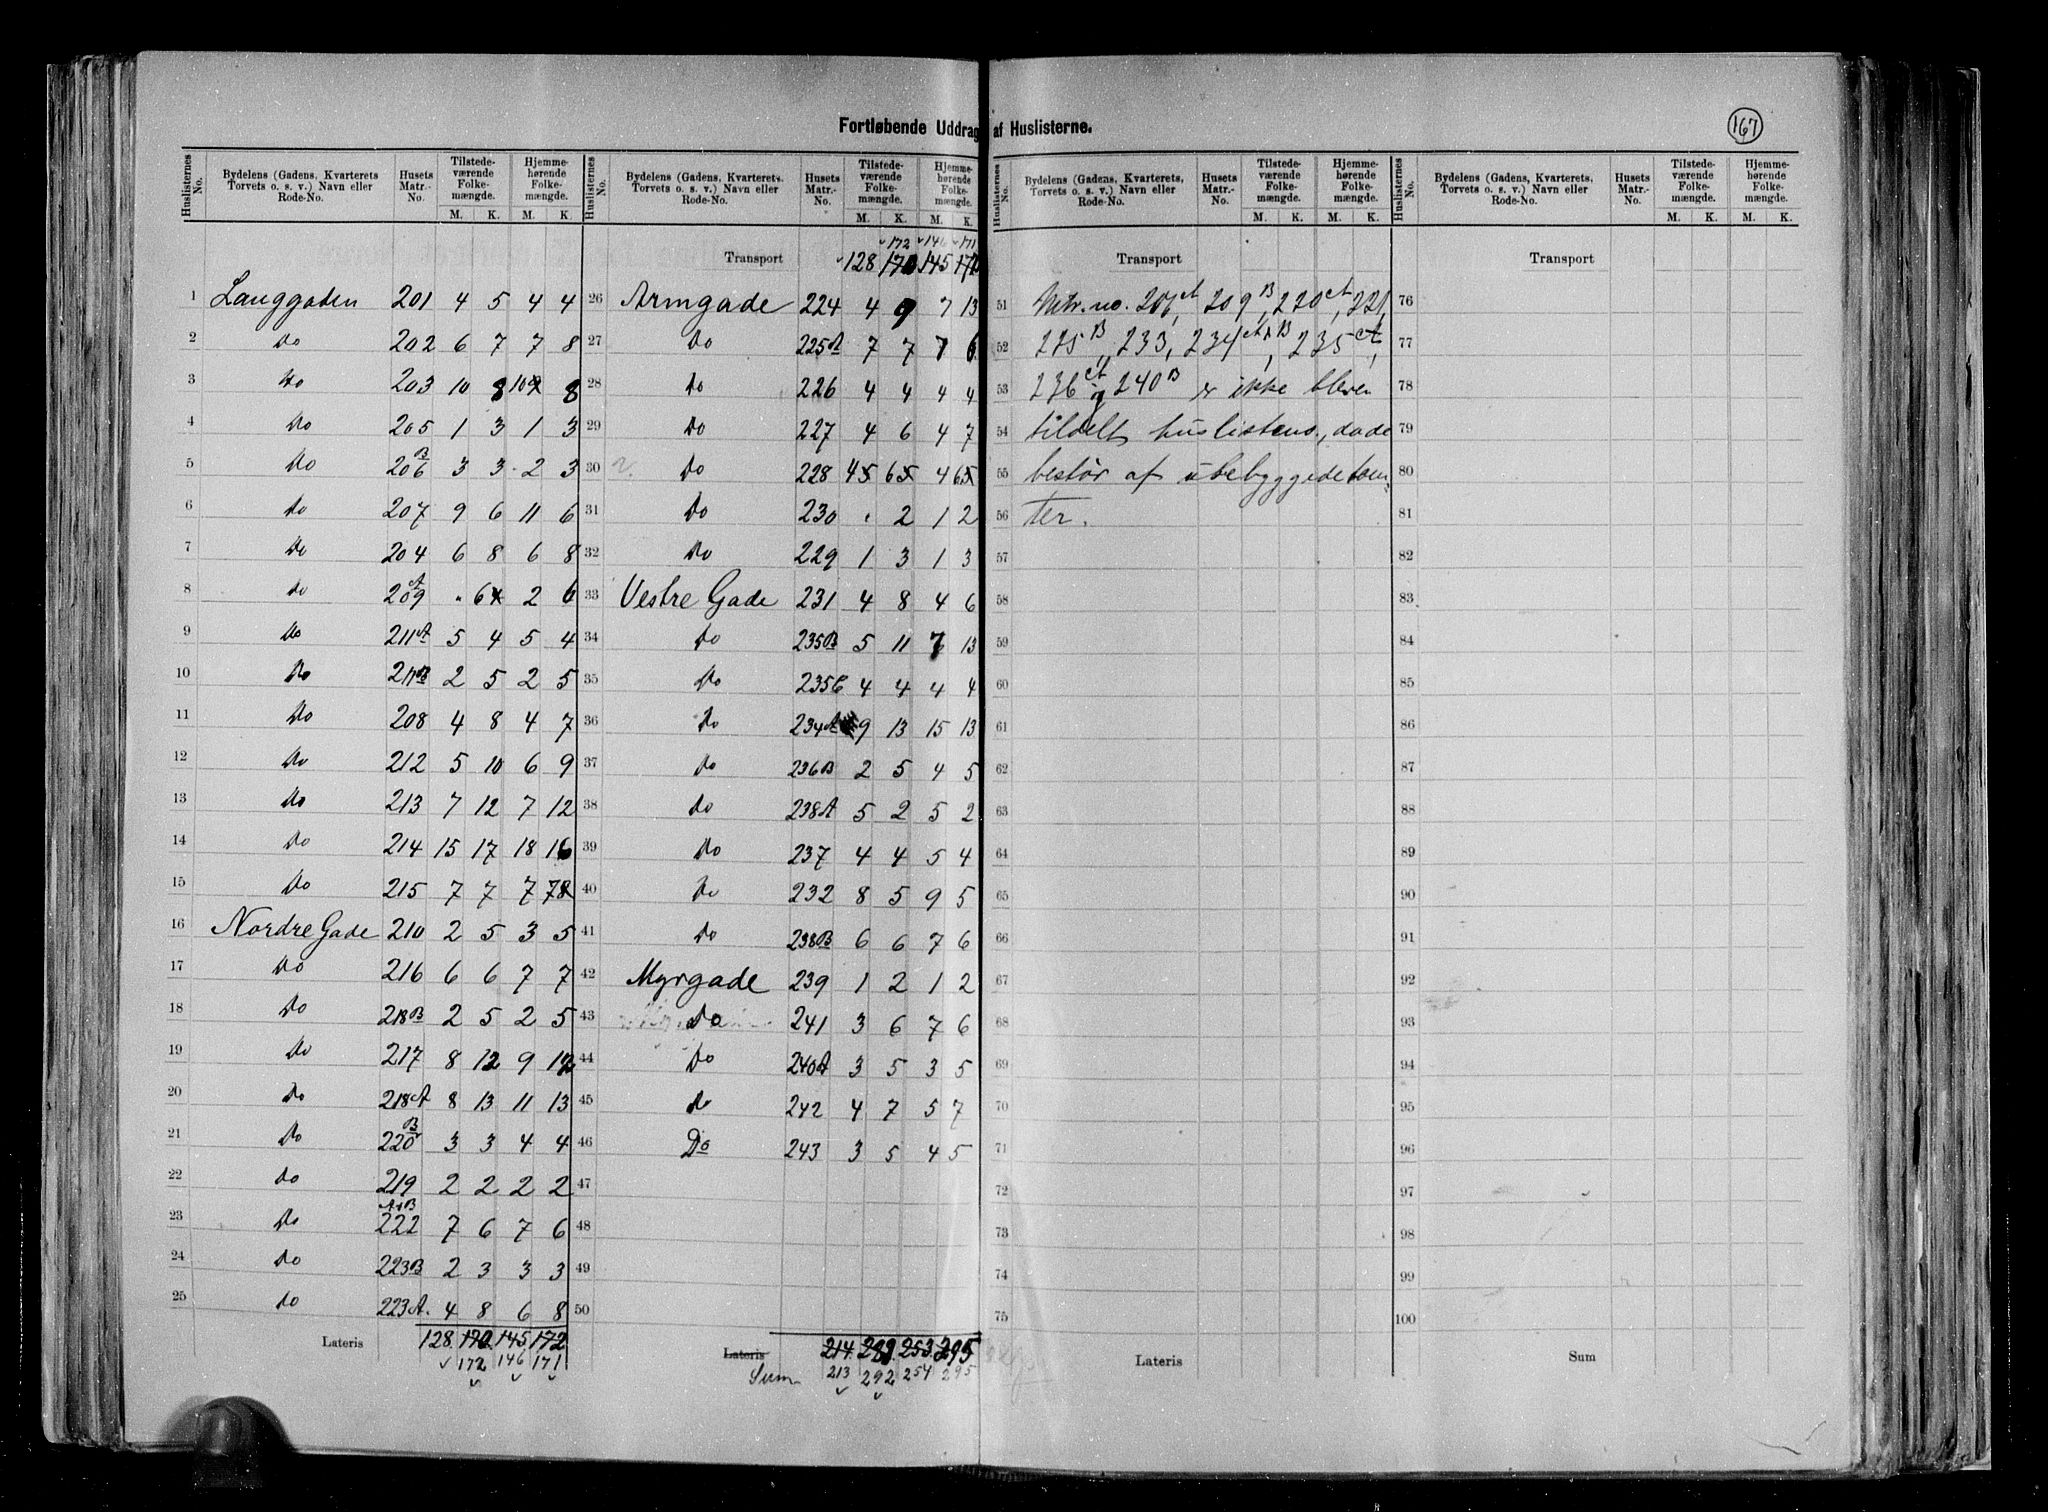 Fortløbende Uddrag af Huslisterne.
167
Huslisternes No. Bydelens (Gadens, Kvarterets, Torvets o. s. v.) Navn eller Rode-No. Husets Matr.-No. Tilstedeværende Folkemængde. M. K. Hjemmehørende Folkemængde. M. K.
1 Langgaden 201 4 5 4 4
2 Do 202 6 7 7 8
3 Do 203 10 8 10 8
4 Do 205 1 3 1 3
5 Do 206 B 3 3 2 3
6 Do 207 9 6 11 6
7 Do 204 6 8 6 8
8 Do 209 A " 6 2 6
9 Do 211 A 5 4 5 4
10 Do 211 B 2 5 2 5
11 Do 208 4 8 4 7
12 Do 212 5 10 6 9
13 Do 213 7 12 7 12
14 Do 214 15 17 18 16
15 Do 215 7 7 7 7 8
16 Nordre Gade 210 2 5 3 5
17 Do 216 6 6 7 7
18 Do 218 B 2 5 2 5
19 Do 217 8 12 9 12
20 Do 218 A 8 13 11 13
21 Do 220 B 3 3 4 4
22 Do 219 2 2 2 2
23 Do 222 A+B 7 6 7 6
24 Do 223 B 2 3 3 3
25 Do 223 A. 4 8 6 8
Lateris 128. 170. 145. 172
172 146 171
Huslisternes No. Bydelens (Gadens, Kvarterets, Torvets o. s. v.) Navn eller Rode-No. Husets Matr.-No. Tilstedeværende Folkemængde. M. K. Hjemmehørende Folkemængde. M. K.
172 146 171
Transport 128 170 145 172
26 Armgade 224 4 9 7 13
27 Do 225 A 7 7 7 6
28 Do 226 4 4 4 4
29 Do 227 4 6 4 7
30 Do 228 4 5 6 5 4 6 5
31 Do 230 " 2 1 2
32 Do 229 1 3 1 3
33 Vestre Gade 231 4 8 4 6
34 Do 235 B 5 11 7 13
35 Do 235 C 4 4 4 4
36 Do 234 A 9 13 15 13
37 Do 236 B 2 5 4 5
38 Do 238 A 5 2 5 2
39 Do 237 4 4 5 4
40 Do 232 8 5 9 5
41 Do 238 B 6 6 7 6
42 Myrgade 239 1 2 1 2
43 Do 241 3 6 7 6
44 Do 240 A 3 5 3 5
45 Do 242 4 7 5 7
46 Do 243 3 5 4 5
47
48
49
50
Lateris 214. 289. 253. 295
Sum 213 292 254 295
Huslisternes No. Bydelens (Gadens, Kvarterets, Torvets o. s. v.) Navn eller Rode-No. Husets Matr.-No. Tilstedeværende Folkemængde. M. K. Hjemmehørende Folkemængde. M. K.
Transport
51 Mtr. no. 206 A, 209 B, 220 A, 221,
52 225 B, 233, 234 A+B, 235 A,
53 236 A og 240 B er ikke bleven
54 tildelt huslisteno., da de
55 bestør af ubebyggede tom-
56 ter.
57
58
59
60
61
62
63
64
65
66
67
68
69
70
71
72
73
74
75
Lateris
Huslisternes No. Bydelens (Gadens, Kvarterets, Torvets o. s. v.) Navn eller Rode-No. Husets Matr.-No. Tilstedeværende Folkemængde. M. K. Hjemmehørende Folkemængde. M. K.
Transport
76
77
78
79
80
81
82
83
84
85
86
87
88
89
90
91
92
93
94
95
96
97
98
99
100
Sum